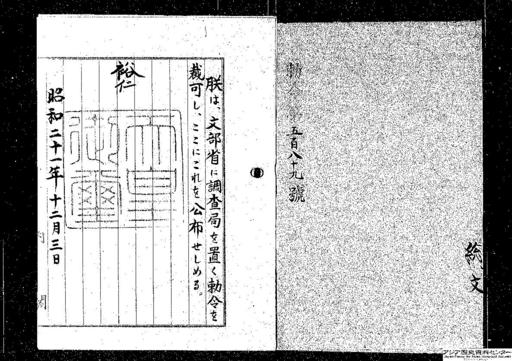 勅令第五百八十九號
絵、文
朕は、文部省に調査局を置く勅令を
裁可し、ここにこれを公布せしめる。
裕仁
昭和二十一年十二月三日
アジア歴史資料センター